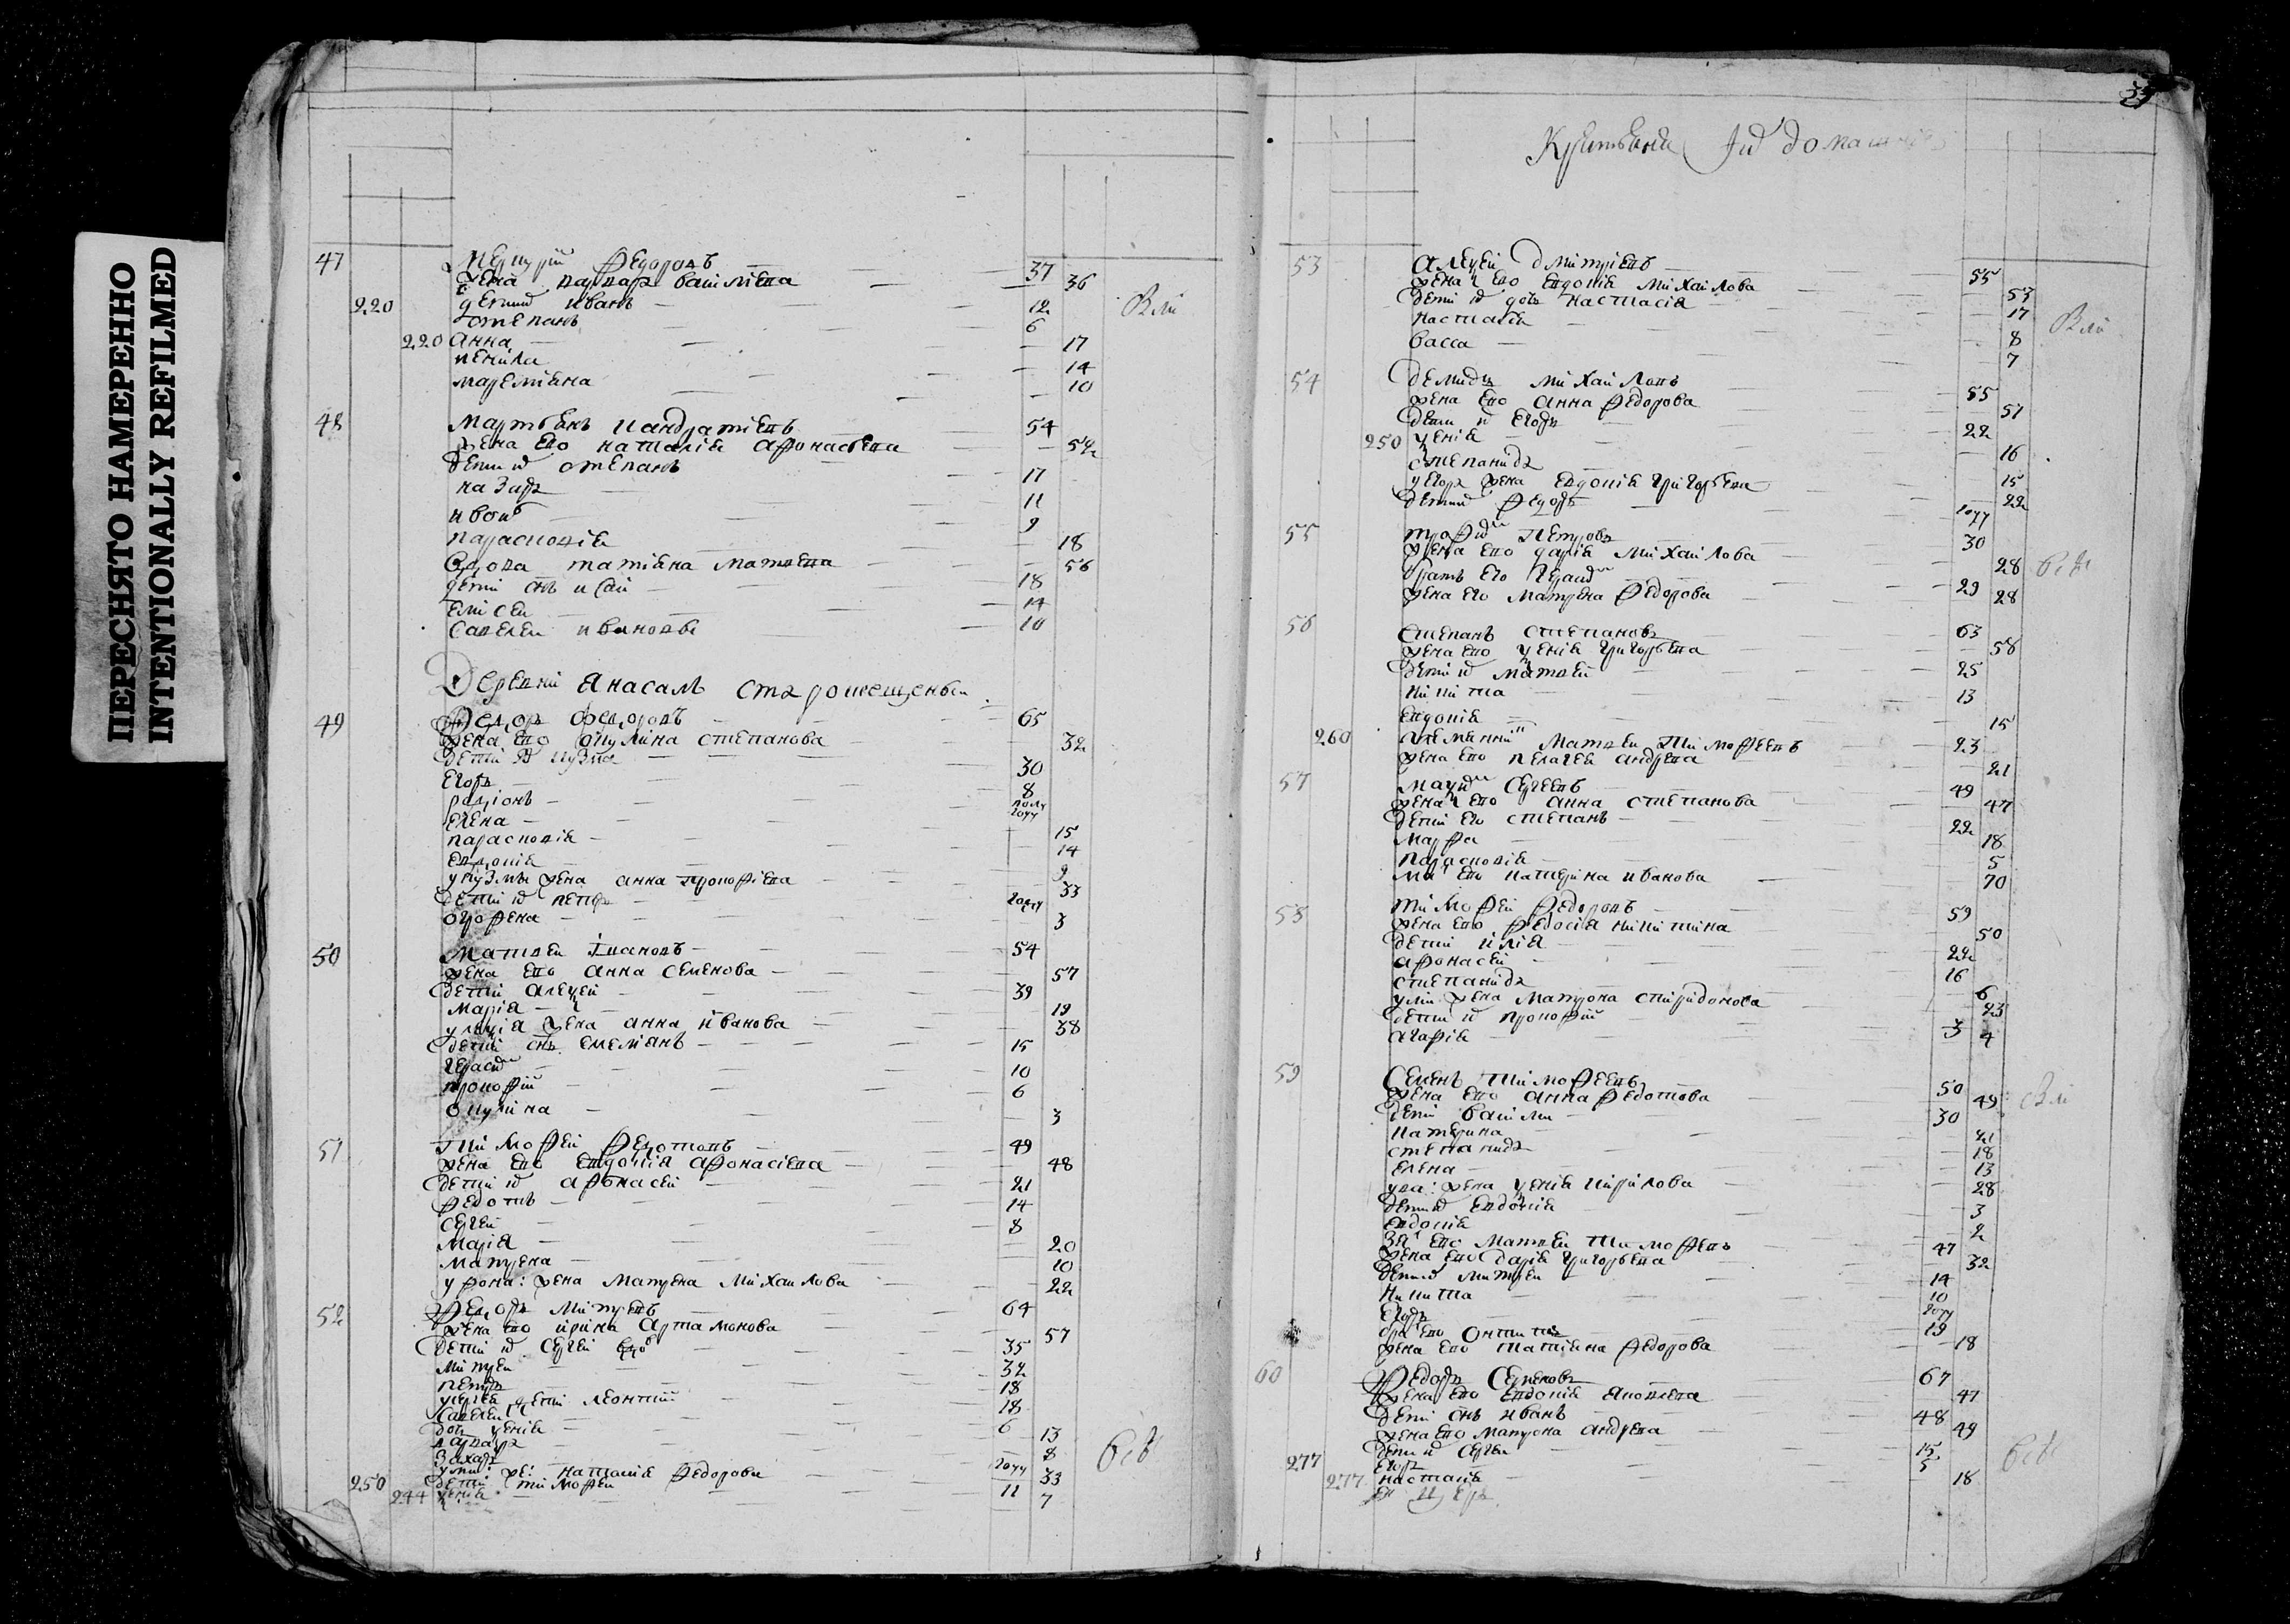 ПЕРЕСНЯТО НАМЕРЕННО
INTENTIONALLY REFILMED
47 Меркурій Федоровъ — 37
жена варвара василиева — 36
220 дети иванъ — 12
степанъ — 6
220 Анна — 17
14
маремияна — 10
48 Мартьянъ кандратиевъ 54
жена ево наталия афонасьева — 52
дети степанъ — 17
назаръ — 11
9
парасковия — 18
вдова татияна матвеева — 56
дети снъ исай — 18
елисеи — 14
савелеи ивановы — 10
Деревни
49 Федоръ федоровъ — 65
жена ево акулина степанова — 32
дети кузма — 30
Егоръ — 8
радионъ — полу году
елена — 15
парасковия — 14
евдокия — 9
у кузмы жена анна прокофиева — 33
дети петръ — году
огрофена — 3
50 Матвеи Ивановъ — 54
жена ево анна семенова — 57
дети алексеи — 39
мария — 19
жена анна иванова — 38
дети снъ емелиянъ — 15
герасим — 10
прокофий — 6
окулина — 3
51 Тимофеи Федотовъ — 49
жена ево евдокия афонасиева — 48
дети афонасеи — 21
федотъ — 14
сергеи — 8
мария — 20
матрена — 10
у фона: жена матрена михаилова — 22
52 Федоръ митревъ — 64
жена ево ирина артамонова — 57
дети сергеи — 35
митреи — 32
петръ — 18
дети леонтий — 18
савелеи — 6
дочь ксения — 13
варвара — 8
захаръ — году
у ми: же: наталия федорова — 33
250 дети тимофеи — 11
244 ксения — 7
Крестьяня
53 Алексеи Дмитриевъ — 55
жена ево евдокия михаилова — 53
дети дочь настасия — 17
настасия — 8
васса — 7
54 демидъ михаиловъ — 55
жена ево анна федорова — 57
дети егоръ — 22
250 ксения — 16
степанида — 15
у егора жена евдокия григорьева — 22
дети федоръ — году
55 трофим петровъ — 30
жена ево дария михаилова — 28
братъ ево герасим — 29
жена ево матрена федорова — 28
56 степанъ степановъ — 63
жена ево ксения григорьева — 58
дети матвеи — 25
никита — 13
евдокия — 15
260 племянник матвеи тимофеевъ — 23
жена ево пелагея андреева — 21
57 максим сергеевъ — 49
жена ево анна степанова — 47
дети ево степанъ — 22
марфа — 18
парасковия — 5
ма ево катерина иванова — 70
58 тимофеи федоровъ — 59
жена ево федосия никитина — 50
дети илия — 22
афонасеи — 16
степанида — 6
у или жена матрона спиридонова — 23
дети прокофий — 3
агафия — 4
59 Семенъ тимофеевъ — 50
жена ево анна федотова — 49
дети василии — 30
катерина — 21
степанида — 18
елена — 13
у ва: жена ксения кирилова — 28
дети евдокия — 3
евдокия — 2
зя ево матвеи тимофеевъ — 47
жена ево дария григорьева — 32
дети митреи — 14
никита — 10
егоръ — году
бра ево — 19
жена ево татияна федорова — 18
60 Федоръ Семеновъ — 67
жена ево евдокия яковлева — 47
дети снъ иванъ — 48
жена ево матрона андреева — 49
дети сергеи — 15
277 егоръ — 5
277 настасия — 18